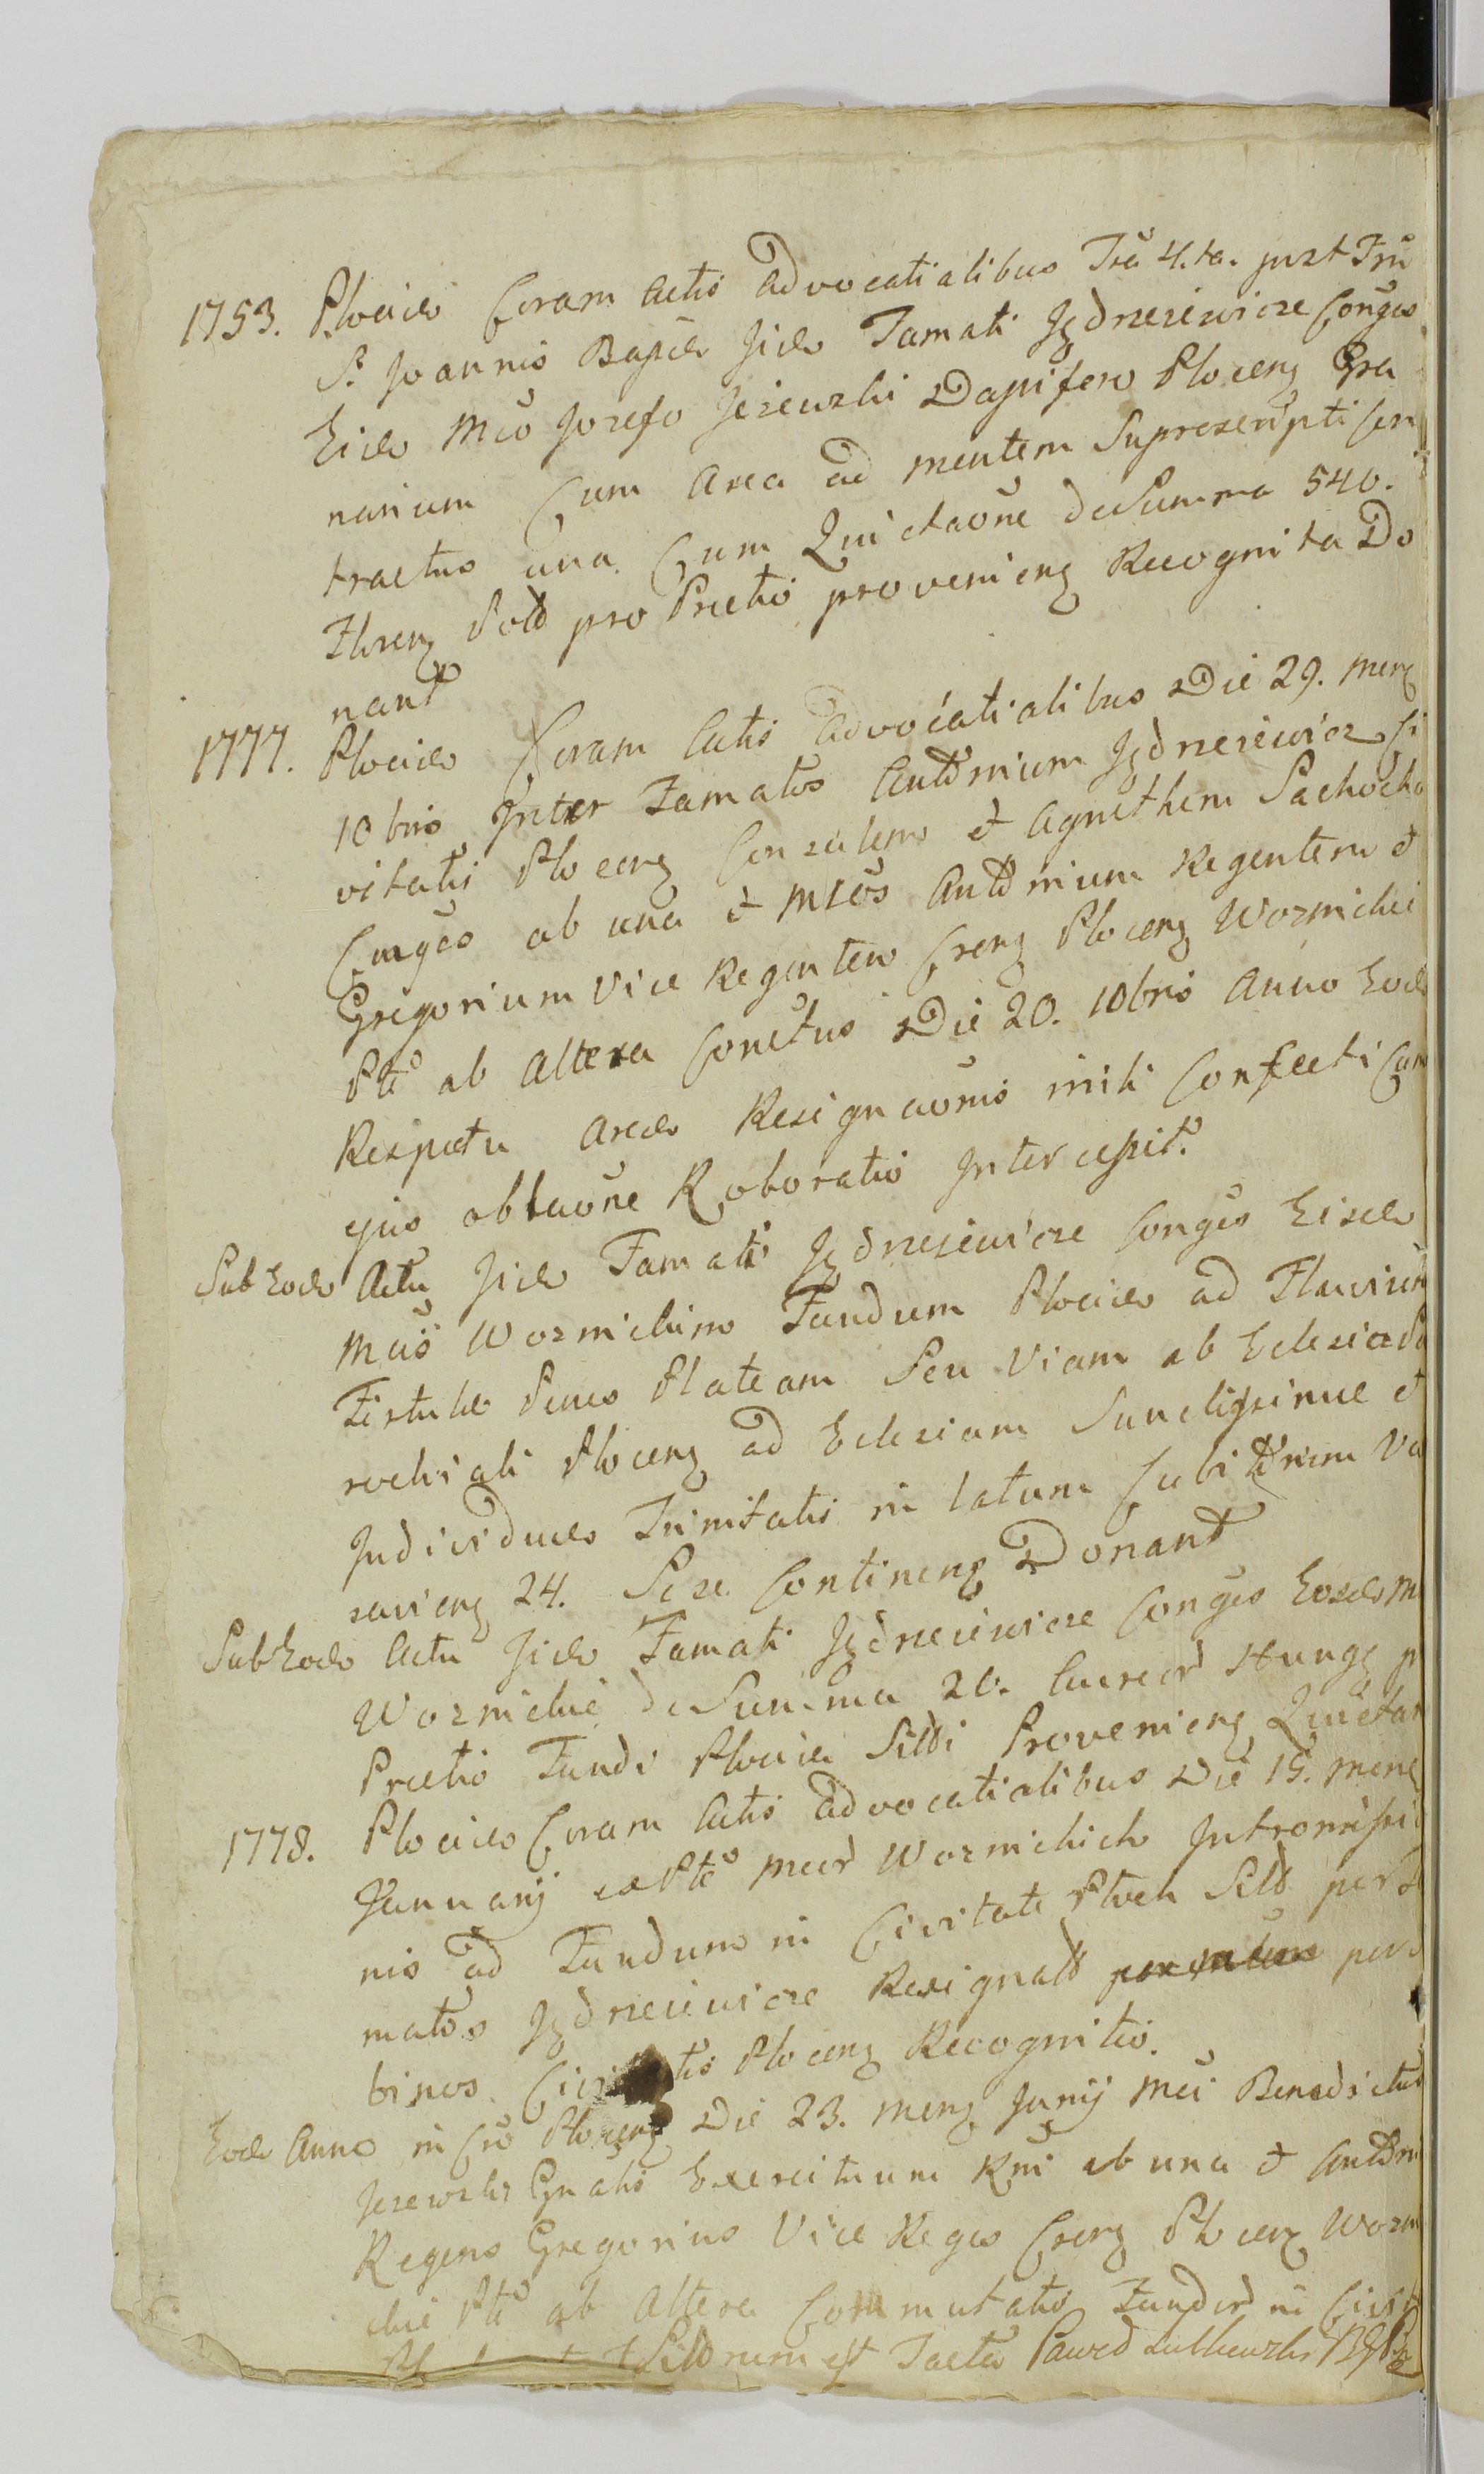 1753. Plociae Coram Actis Advocatialibus Fria 4.ta. post Fm̃
S. Joannis Bapᷓae Jidē Famati Jędrzeiewicze Conges
Eidē Mco Josefo Jeziewski Dapifero Plocens Gra
narium Cum Area ad mentem Suprascripti Con
tractus una Cum Quietaōne de Summa 540.
Floren Pold pro Pretio proveniens Recognita Do
nant
1777. Plociae Coram Actis Advocatialibus Die 29. mens
10bris Inter Famatos Antonium Jędrzeiewicz Ci
vitatis Plocens Consulem et Agnethem Pachocka
Conges ab una et Mcos Antonium Regentem et
Gregorium Vice Regentem Crens Plocens Woznickie
Pte ab Altera Conctus Die 20. 10bris Anno Eode
Respectu Areae Resignaōnis inita Confecti Cum
ejus oblaōne Roboratio Intercessit.
Sub Eodē Actu Jidē Famati Jędrzeiewicze Conges Eisdē
Mcis Woznickim Fundum Plociae ad Fluvium
Fistulae Penes Plateam Seu Viam ab Eclesia Pa
rochiali Plocens ad Eclesiam Sanctissimae et
Individuae Trinitatis in latum Cubitorum Var
saviens 24. Se se Continens Donant
Sub Eodē Actu Jidē Famati Jędrzeiewicze Conges Eosdē M
Woznickie de Summa 20. Aureor Hung p
Pretio Fundi Plociae Siti Proveniens Quietan
1778. Plociae Coram Actis Advocatialibus Die 15. mens
Januarij ex Pte Mcor Woznickich Intromissio
nis ad Fundum in Civitate Ploch Sito per Fa
matos Jędrzeiewicze Resignato per
binos Civitatis Plocens Recognitio.
Eodē Anno in Crō Plocens Die 23. mens Junij Mci Benedictus
Jezewski Gnalis Exercituum Rni ab una et Antoni
Regens Gregorius Vice Reges Crens Plocens Wozni
ckie Pte ab Altera Commutatio Fundor in Civit
Sitorum est Facta Paweł Lutkewski